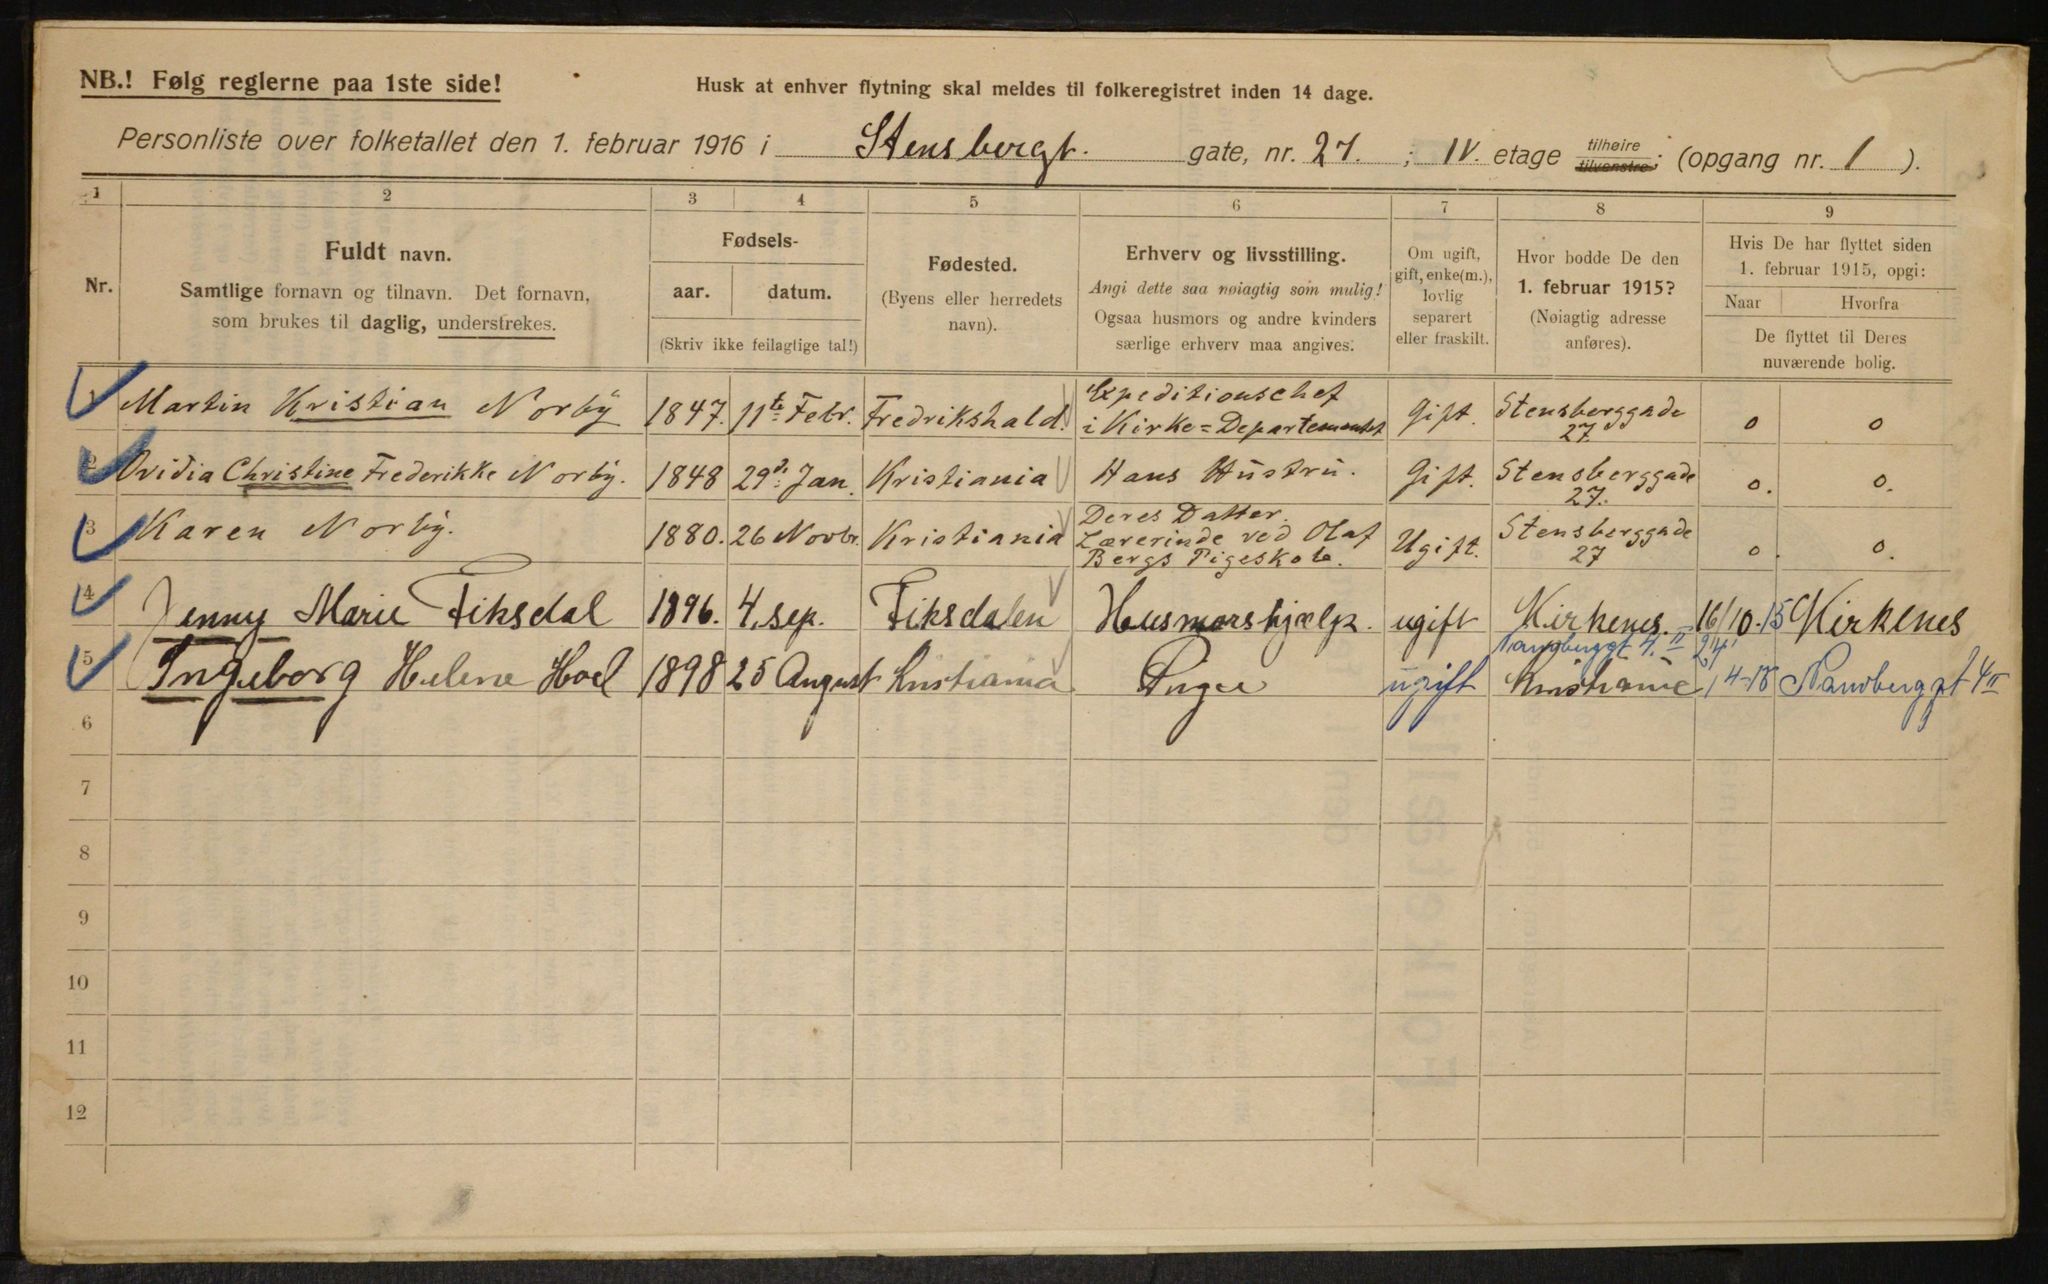 NB.! Følg reglerne paa 1ste side!
Husk at enhver flytning skal meldes til folkeregistret inden 14 dage.
Personliste over folketallet den 1. februar 1916 i Stensbergt. gate, nr. 27. ; IV. etage tilhøire tilvenstre; (opgang nr. 1 ).
1 2 3 4 5 6 7 8 9
Nr.
Fuldt navn.
Samtlige fornavn og tilnavn. Det fornavn,
som brukes til daglig, understrekes.
Fødsels-
aar. datum.
(Skriv ikke feilagtige tal!)
Fødested.
(Byens eller herredets
navn).
Erhverv og livsstilling.
Angi dette saa nøiagtig som mulig!
Ogsaa husmors og andre kvinders
særlige erhverv maa angives.
Om ugift,
gift, enke(m.),
lovlig
separert
eller fraskilt.
Hvor bodde De den
1. februar 1915?
(Nøiagtig adresse
anføres).
Hvis De har flyttet siden
1. februar 1915, opgi:
Naar Hvorfra
De flyttet til Deres
nuværende bolig.
1 Martin Kristian Norby 1847. 11te Febr. Fredrikshald. Expeditionschef
i Kirke=Departementet Gift. Stensberggade
27 0 0
2 Ovidia Christine Frederikke Norby. 1848 29d. Jan. Kristiania Hans Hustru. Gift. Stensberggade
27. 0. 0.
3 Karen Norby. 1880. 26 Novbr. Kristiania Deres Datter.
Lærerinde ved Olaf
Bergs Pigeskole. Ugift. Stensberggade
27 0. 0.
4 Jenny Marie Fiksdal 1896. 4. sep. Fiksdalen Husmorshjælp. ugift Kirkenes. 16/10.15 Kirkenes
5 Ingeborg Helene Hoel 1898 25 August Kristiania Pige ugift Kristiania
6
7
8
9
10
11
12